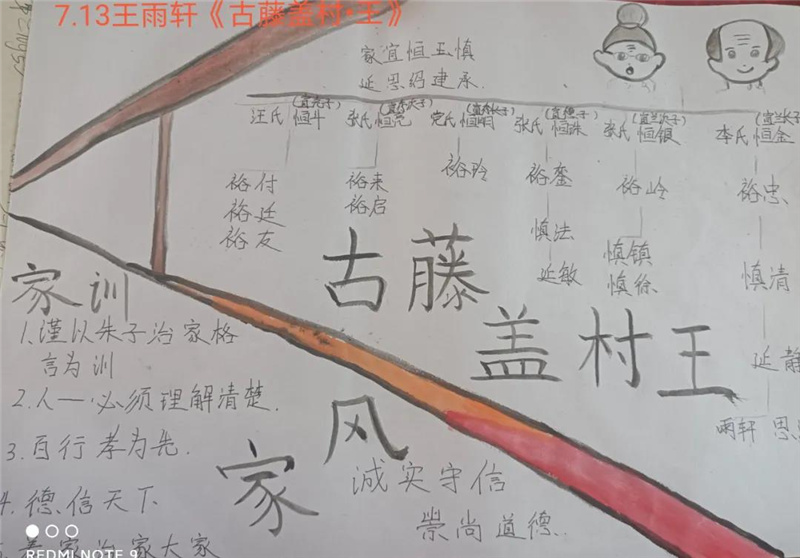 7.13王雨轩《古藤盖村·王》
家宜恒五慎
延思绍建承
汪氏恒斗(宜尧子)
张氏恒亮
党氏恒明
张氏恒珠
张氏恒银(宜兰次子)
李氏恒金(宜兰长子)
裕付
裕廷
裕友
裕来
裕启
裕玲
裕銮
慎法
延敏
裕岭
慎镇
慎徐
裕忠
慎清
延静
雨轩
古藤
盖村王
家训
1.谨以朱子治家格
言为训
2.人一必须理解清楚.
3.百行孝为先.
4.德信天下
家治家大家
家风
诚实守信
崇尚道德.
REDMI NOTE 9